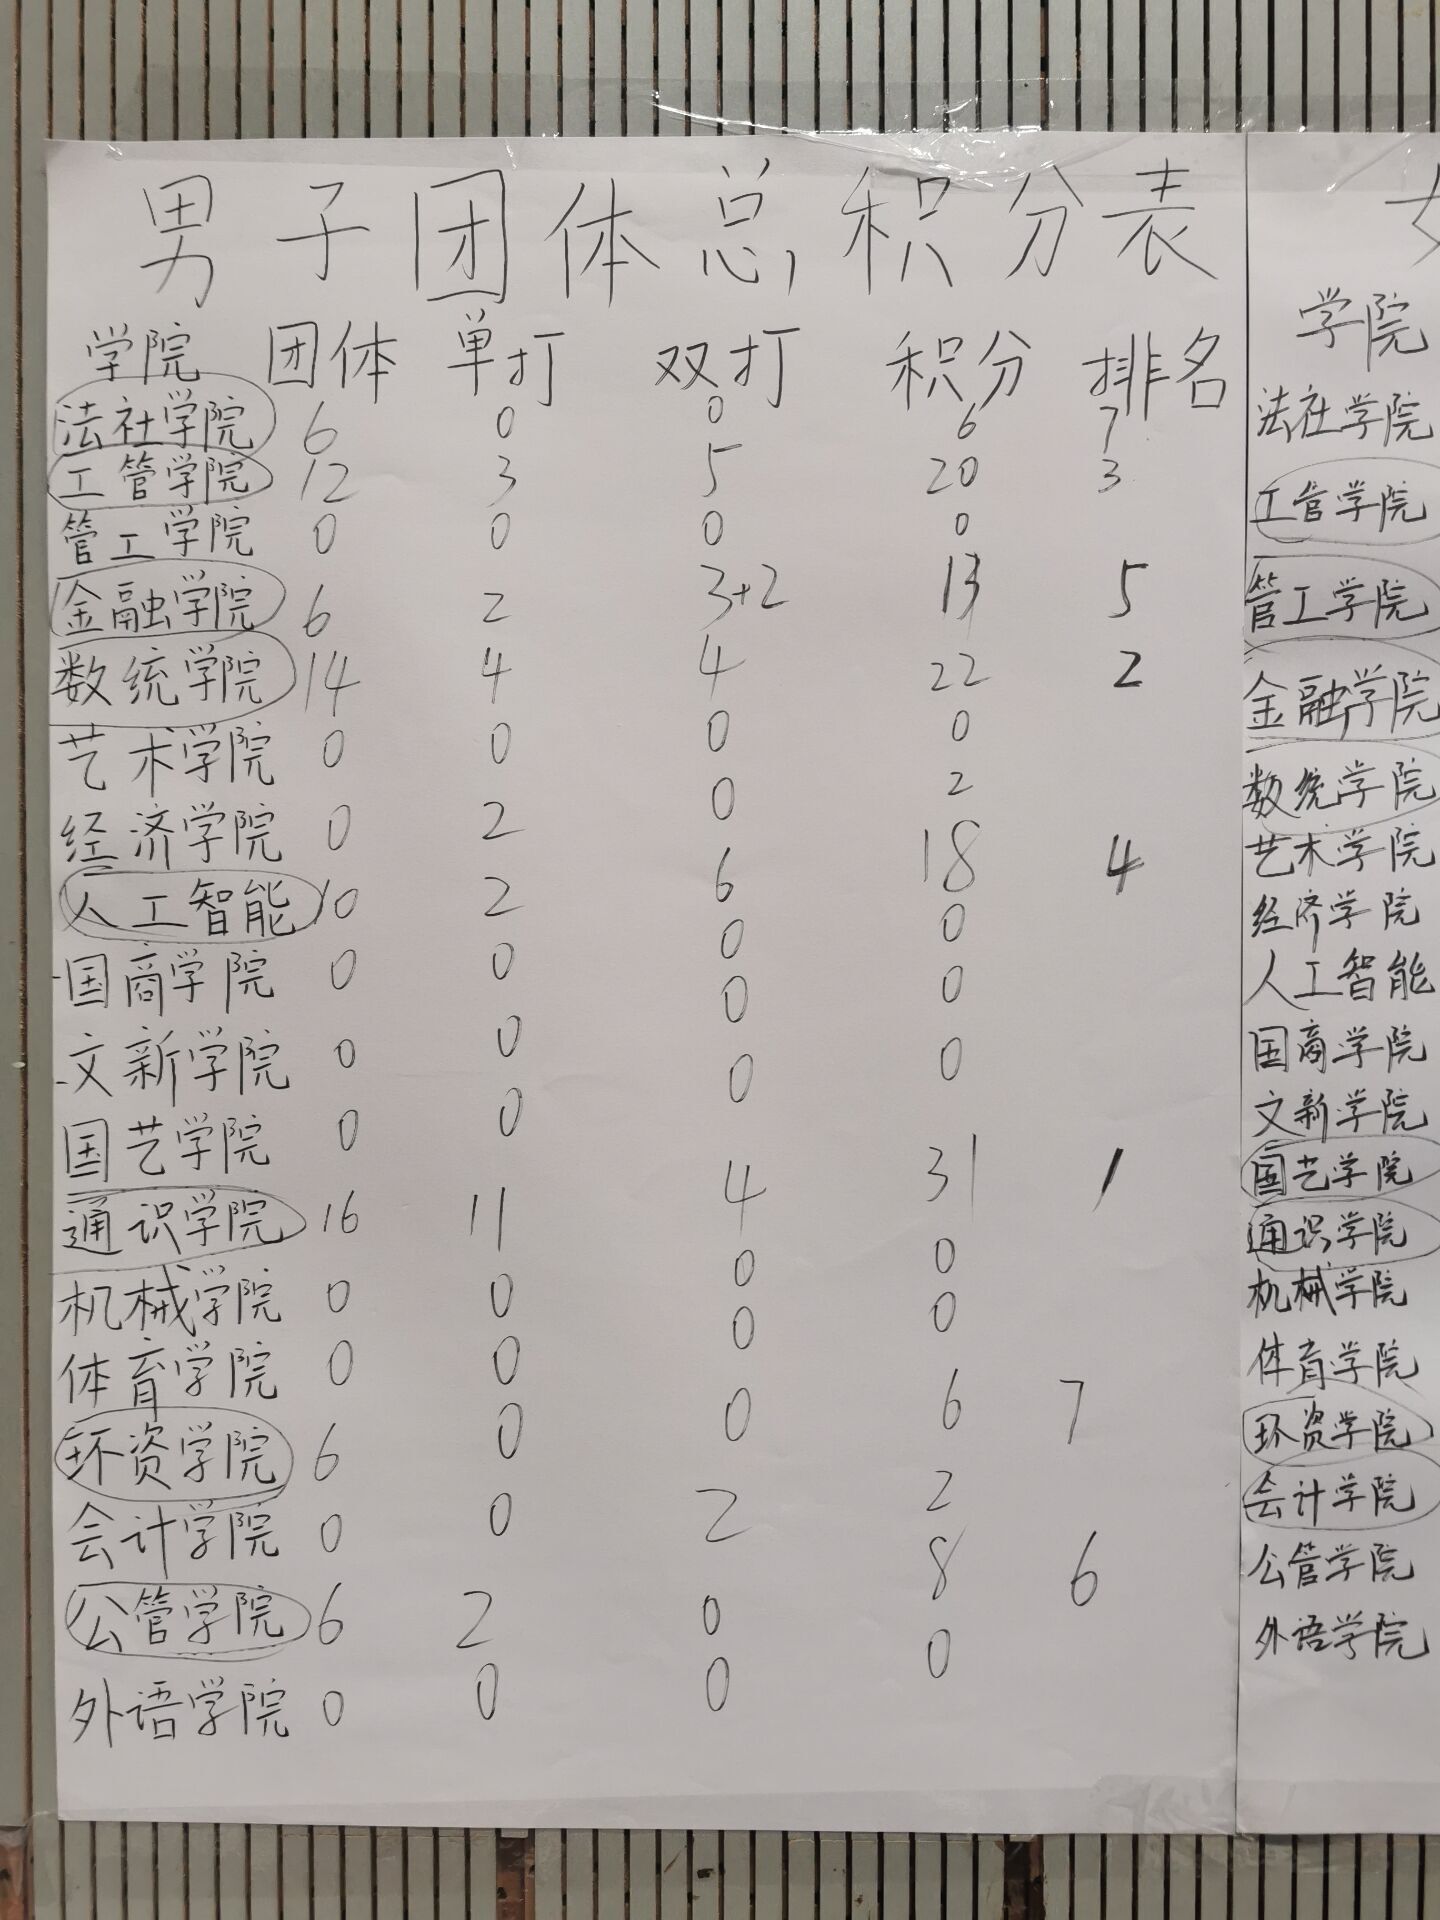 男子团体总积分表
学院 团体 单打 双打 积分 排名
法社学院 6 0 0 6 7
工管学院 12 3 5 20 3
管工学院 0 0 0 0
金融学院 6 2 3+2 13 5
数统学院 14 4 4 22 2
艺术学院 0 0 0 0
经济学院 0 2 0 2
人工智能 10 2 6 18 4
国商学院 0 0 0 0
文新学院 0 0 0 0
国艺学院 0 0 0 0
通识学院 16 11 4 31 1
机械学院 0 0 0 0
体育学院 0 0 0 0
环资学院 6 0 0 6 7
会计学院 0 0 2 2
公管学院 6 2 0 8 6
外语学院 0 0 0 0
学院
法社学院
工管学院
管工学院
金融学院
数统学院
艺术学院
经济学院
人工智能
国商学院
文新学院
国艺学院
通识学院
机械学院
体育学院
环资学院
会计学院
公管学院
外语学院